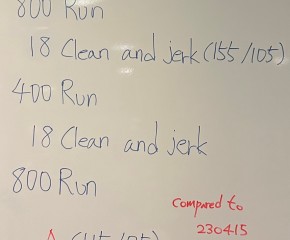 800 Run
18 Clean and jerk (155/105)
400 Run
18 Clean and jerk
800 Run
Compared to
230415
(115/105)